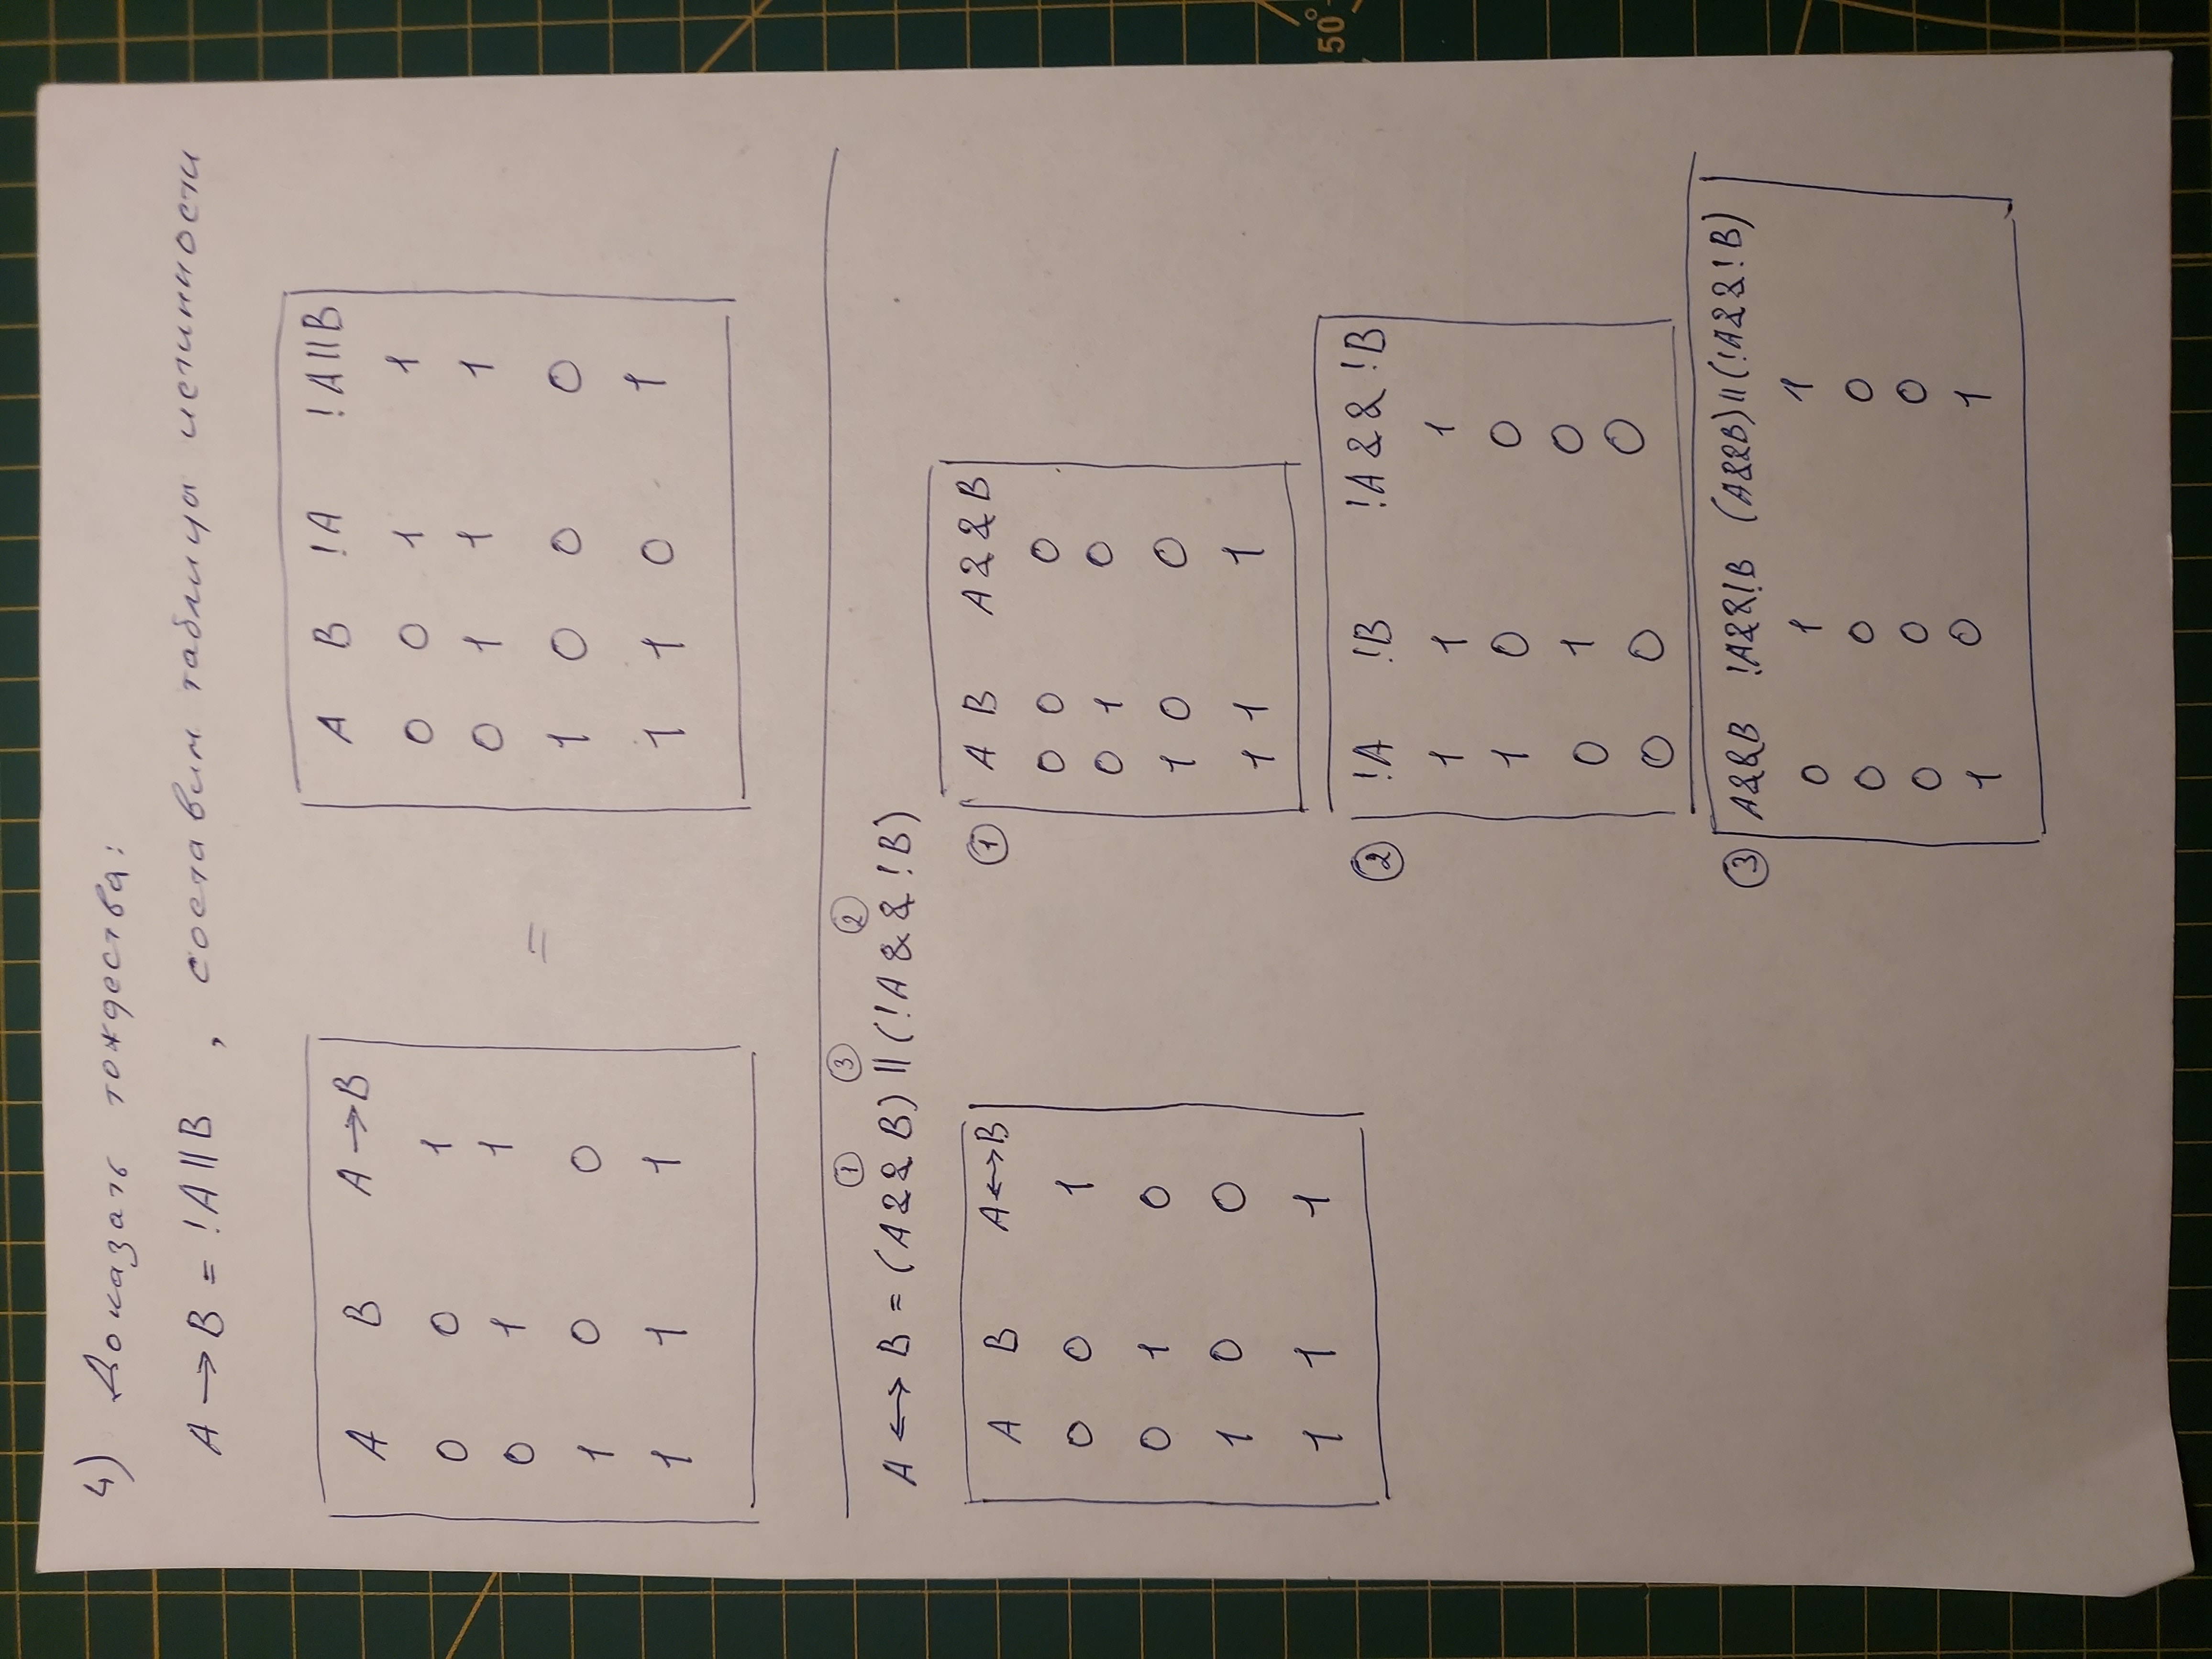 4) Доказать тождества:
A → B = !A || B , составим таблицы истинности
A B A → B
0 0 1
0 1 1
1 0 0
1 1 1
=
A B !A !A || B
0 0 1 1
0 1 1 1
1 0 0 0
1 1 0 1
① ③ ②
A ↔ B = (A && B) || (!A && !B)
A B A ↔ B
0 0 1
0 1 0
1 0 0
1 1 1
① A B A && B
0 0 0
0 1 0
1 0 0
1 1 1
② !A !B !A && !B
1 1 1
1 0 0
0 1 0
0 0 0
③ A&&B !A&&!B (A&&B) || (!A&&!B)
0 1 1
0 0 0
0 0 0
1 0 1
50°